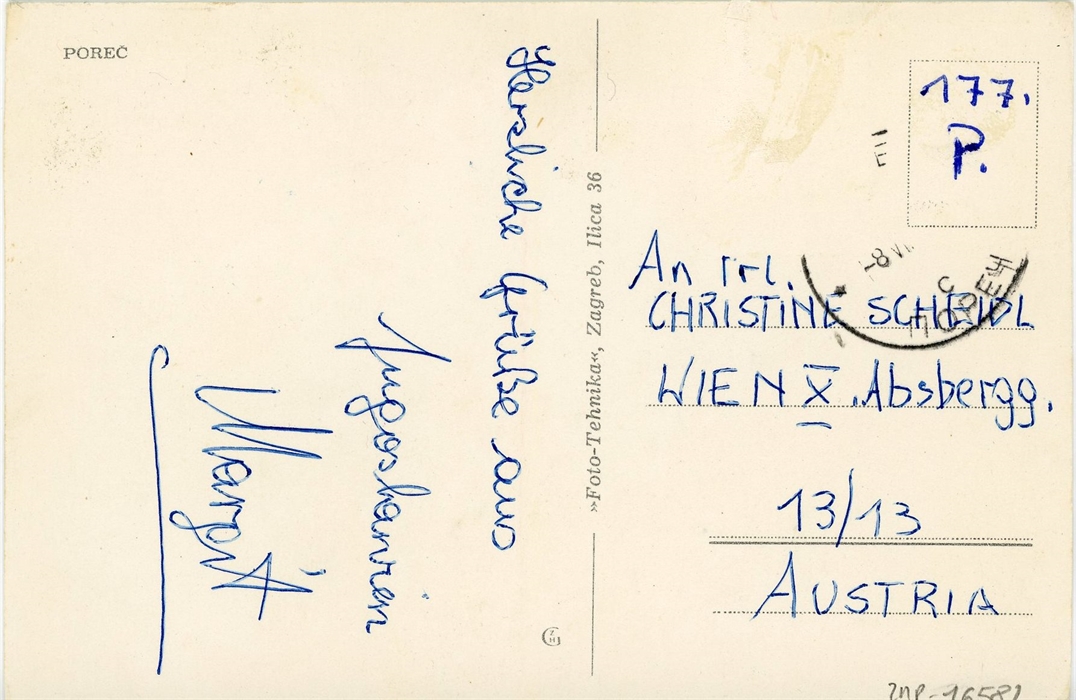 POREČ
Herzliche Grüße aus
Jugoslawien
Margit
»Foto-Tehnika«, Zagreb, Ilica 36
177.
P.
An Frl.
CHRISTINE SCHEIDL
WIEN X., Absbergg.
13/13
AUSTRIA
-8 VI